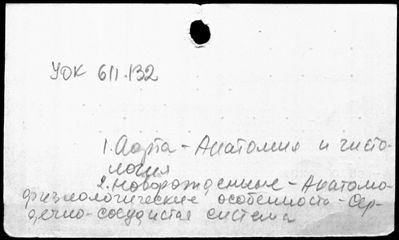 УДК 611.132
1. Аорта - Анатомия и гисто-
логия
2. Новорожденные - Анатомо-
физиологические особенность - Сер-
дечно-сосудистая система